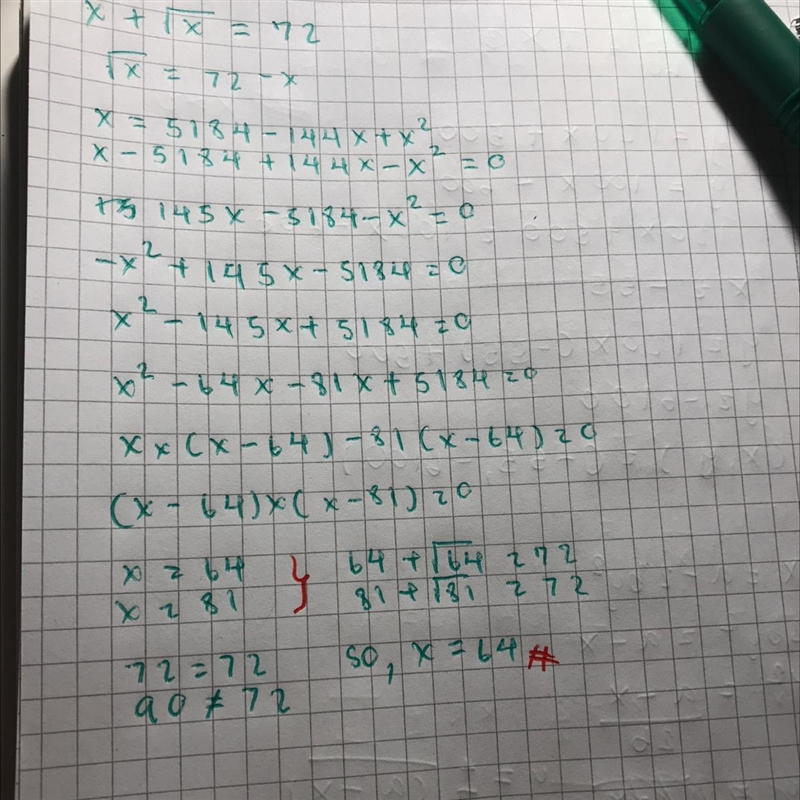 x + √x = 72
√x = 72 - x
x = 5184 - 144x + x²
x - 5184 + 144x - x² = 0
145x - 5184 - x² = 0
-x² + 145x - 5184 = 0
x² - 145x + 5184 = 0
x² - 64x - 81x + 5184 = 0
x × (x - 64) - 81 (x - 64) = 0
(x - 64) × (x - 81) = 0
x = 64 } 64 + √64 = 72
x = 81 81 + √81 = 72
72 = 72 so, x = 64 #
90 ≠ 72